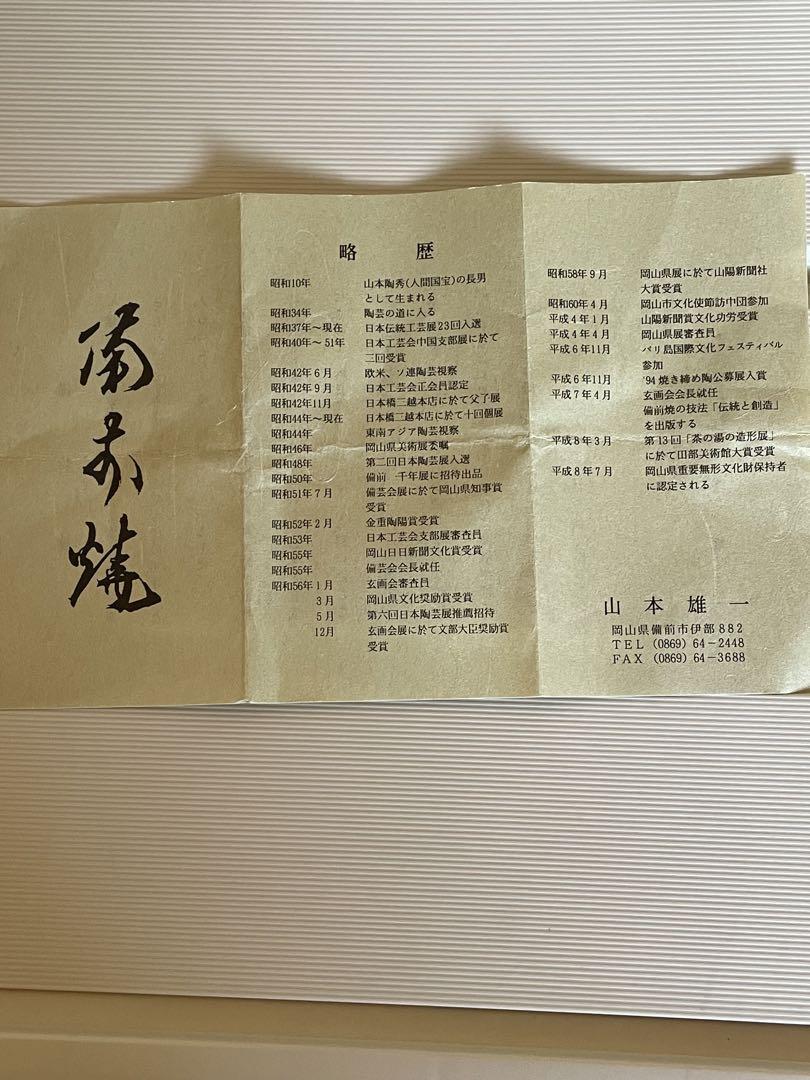 備前焼
略歴
昭和10年 山本陶秀(人間国宝)の長男
として生まれる
昭和34年 陶芸の道に入る
昭和37年～現在 日本伝統工芸展23回入選
昭和40年～51年 日本工芸会中国支部展に於て
三回受賞
昭和42年6月 欧米、ソ連陶芸視察
昭和42年9月 日本工芸会正会員認定
昭和42年11月 日本橋三越本店に於て父子展
昭和44年～現在 日本橋三越本店に於て十回個展
昭和44年 東南アジア陶芸視察
昭和46年 岡山県美術展委嘱
昭和48年 第二回日本陶芸展入選
昭和50年 備前一千年展に招待出品
昭和51年7月 備芸会展に於て岡山県知事賞
受賞
昭和52年2月 金重陶陽賞受賞
昭和53年 日本工芸会支部展審査員
昭和55年 岡山日日新聞文化賞受賞
昭和55年 備芸会会長就任
昭和56年1月 玄画会審査員
3月 岡山県文化奨励賞受賞
5月 第六回日本陶芸展推薦招待
12月 玄画会展に於て文部大臣奨励賞
受賞
昭和58年9月 岡山県展に於て山陽新聞社
大賞受賞
昭和60年4月 岡山市文化使節訪中団参加
平成4年1月 山陽新聞賞文化功労受賞
平成4年4月 岡山県展審査員
平成6年11月 バリ島国際文化フェスティバル
参加
平成6年11月 '94焼き締め陶公募展入賞
平成7年4月 玄画会会長就任
備前焼の技法「伝統と創造」
を出版する
平成8年3月 第13回「茶の湯の造形展」
に於て田部美術館大賞受賞
平成8年7月 岡山県重要無形文化財保持者
に認定される
山本雄一
岡山県備前市伊部882
TEL (0869) 64-2448
FAX (0869) 64-3688